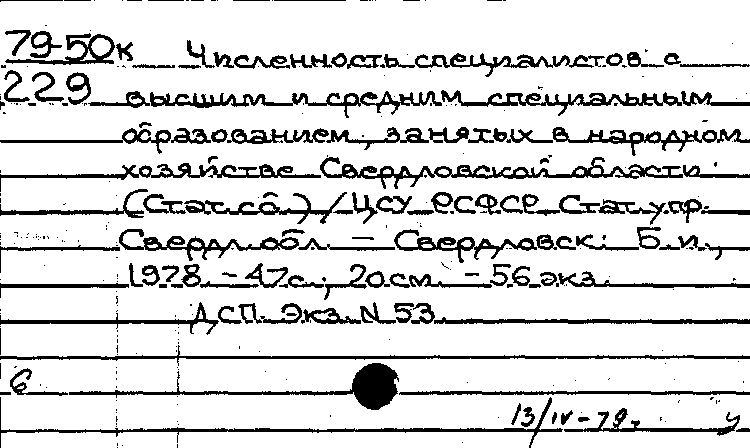 79-50к Численность специалистов с
229 высшим и средним специальным
образованием, занятых в народном
хозяйстве Свердловской области.
(Стат. сб.) / ЦСУ РСФСР. Стат. упр.
Свердл. обл. — Свердловск: Б. и.,
1978. - 47с.; 20см. - 56 экз.
ДСП. Экз. N 53.
6
13/IV-79.
у